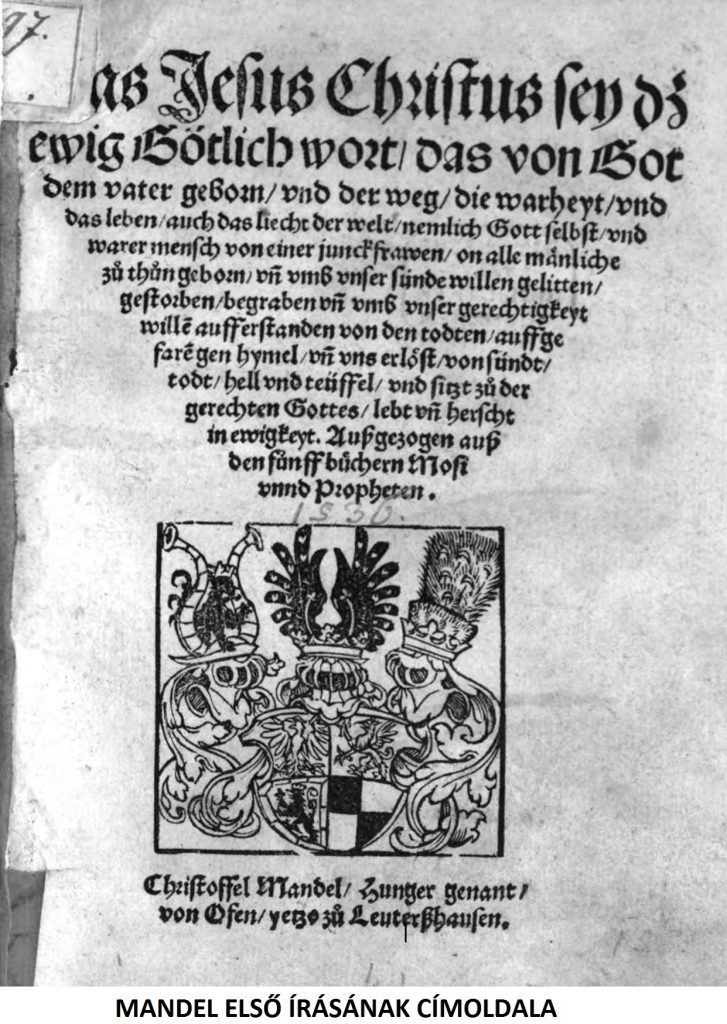 97.
as Jesus Christus sey dʒ
ewig Götlich wort/ das von Got
dem vater geborn/ vnd der weg/ die warheyt/ vnd
das leben/ auch das liecht der welt/ nemlich Gott selbst/ vnd
warer mensch von einer junckfrawen/ on alle mänliche
zů thůn geborn/ vñ vmb vnser sünde willen gelitten/
gestorben/ begraben vñ vmb vnser gerechtigkeyt
willē aufferstanden von den todten/ auffge
farē gen hymel/ vñ vns erlöst/ von sündt/
todt/ hell vnd teüffel/ vnd sitzt zů der
gerechten Gottes/ lebt vñ herscht
in ewigkeyt. Außgezogen auß
den fünff büchern Mosi
vnnd Propheten.
1536.
Christoffel Mandel/ Hunger genant/
von Ofen/ yetzo zů Leuterßhausen.
MANDEL ELSŐ ÍRÁSÁNAK CÍMOLDALA